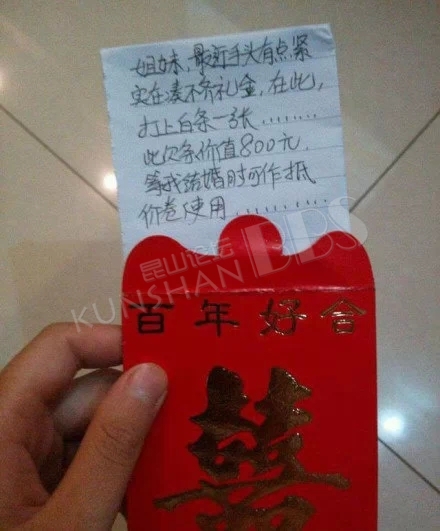 姐妹，最近手头有点紧
实在凑不齐礼金，在此，
打上白条一张........
此欠条价值800元.
等我结婚时可作抵
价卷使用...........
昆山论坛
KUNSHAN BBS
百年好合
囍